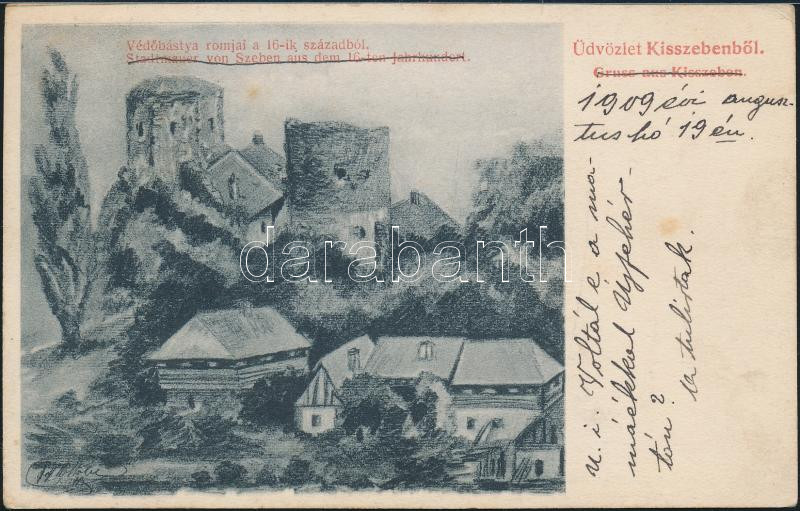 Védőbástya romjai a 16-ik századból.
Stadtmauer von Szeben aus dem 16-ten Jahrhundert.
Üdvözlet Kisszebenből.
Gruss aus Kisszeben.
1909 évi augusz-
tus hó 19 én.
u. i. Voltál e a ma-
máékkal Újfehér-
tón?
darabanth